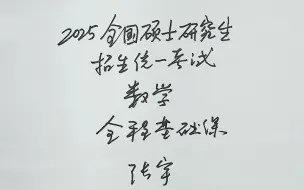 2025全国硕士研究生
招生统一考试
数学
全程基础课
张宇